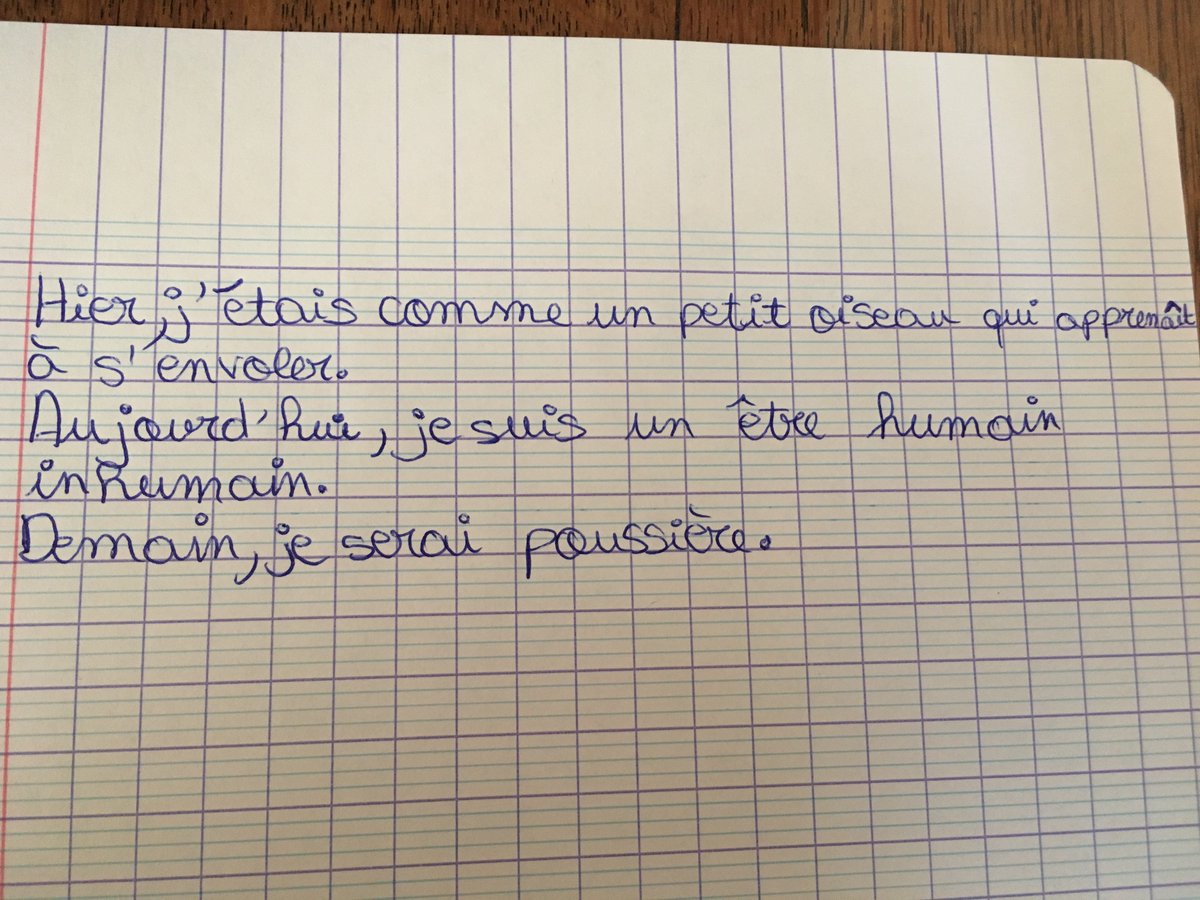 Hier, j'étais comme un petit oiseau qui apprenaît
à s'envoler.
Aujourd'hui, je suis un être humain
inhumain.
Demain, je serai poussière.